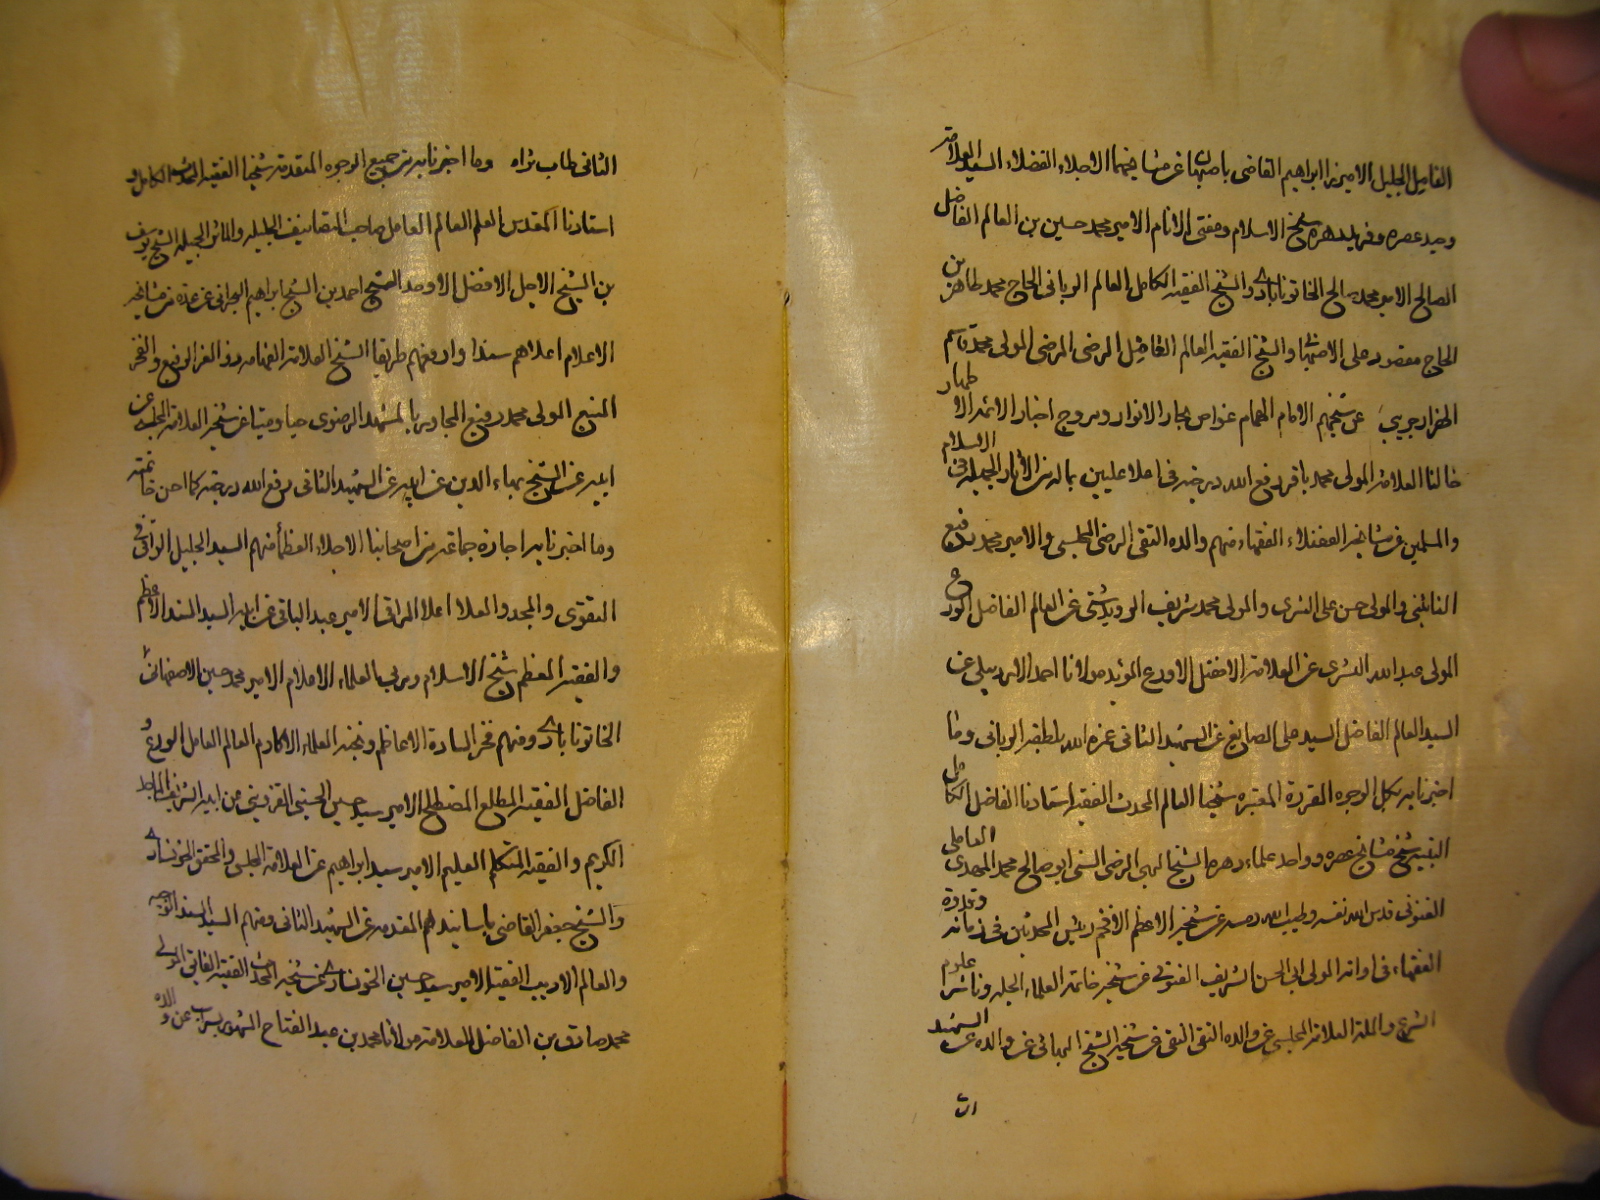 الفاضل الجليل الاميرزا ابراهيم القاضي باصبهان عن مشايخهما الاجلاء الفضلاء السيد العلامة
وحيد عصره وفريد دهره شيخ الاسلام ومفتى الانام الامير محمد حسين بن العالم الفاضل
الصالح الامير محمد صالح الخاتونابادى والشيخ الفقيه الكامل العالم الربانى الحاج محمد طاهر بن
الحاج مقصود على الاصبهانى والشيخ الفقيه العالم الفاضل الرضى المرضى المولى محمد قاسم
الهزارجريبى عن شيخهم الامام الهمام غواص بحار الانوار ومروج اخبار الائمة الاطهار
خالنا العلامة المولى محمد باقر رفع الله درجته فى اعلا عليين بماله من الآثار الجميلة فى الاسلام
والمسلمين عن مشايخه الفضلاء الفقهاء منهم والده التقى الرضى المجلسى والامير محمد رفيع
النائينى والمولى حسن على التسترى والمولى محمد شريف الرويدشتى عن العالم الفاضل الورع
المولى عبد الله التسترى عن العلامة الافضل الاورع المؤيد مولانا احمد الاردبيلى عن
السيد العالم الفاضل السيد على الصايغ عن الشهيد الثانى غمره الله بلطفه الربانى ومما
اخبرنا به بكل الوجوه المقررة المعتبره شيخنا العالم المحدث الفقيه استادنا الفاضل الكامل
النبيه شيخ مشايخ عصره وواحد علماء دهره الشيخ البهى الرضى السنى ابو صالح محمد المهدى العاملى
الفتونى قدس الله نفسه وطيب الله رمسه عن شيخه الاعظم الافخم رئيس المحدثين فى زمانه وقدوة
الفقهاء فى اوانه المولى ابى الحسن الشريف الفتونى عن شيخه خاتمة العلماء الجله وناشر علوم
الشرع والملة العلامة المجلسى عن والده التقى النقى عن شيخه الشيخ البهائى عن والده عن الشهيد
الث
الثانى طاب ثراه ومما اخبرنا به من جميع الوجوه المتقدمة شيخنا الفقيه المحدث الكامل و
استادنا المقدس العلم العالم العامل صاحب التصانيف الجليله والمآثر الجميله الشيخ يوسف
بن الشيخ الاجل الافضل الاوحد الشيخ احمد بن الشيخ ابراهيم البحرانى عن عدة من مشايخه
الاعلام اعلاهم سندا وارفعهم طريقا الشيخ العلامة الفهامه ذو العز الرفيع والفخر
المنيع المولى محمد رفيع المجاور بالمشهد الرضوى حيا وميتا عن شيخه العلامة المجلسى عن
ابيه عن الشيخ بهاء الدين عن ابيه عن الشهيد الثانى رفع الله درجته كما احسن خاتمته
ومما اخبرنا به اجازة جماعة من اصحابنا الاجلاء العظماء منهم السيد الجليل الراقى فى
التقوى والمجد والعلا اعلا المراقى الامير عبد الباقى عن ابيه السيد السند الاعظم
والفقيه المعظم شيخ الاسلام ومربى العلماء الاعلام الامير محمد حسين الاصفهانى
الخاتونابادى ومنهم فخر السادة الاعاظم ونخبة العلماء الاكارم العالم العامل الورع و
الفاضل الفقيه المطلع المضطلع الامير سيد حسين الحسينى القزوينى عن ابيه الشريف
الكريم والفقيه المتكلم العليم الامير سيد ابراهيم عن العلامة المجلسى والمحقق الخونسارى
والشيخ جعفر القاضى باسانيدهم المقدمه عن الشهيد الثانى ومنهم السيد السند الوجيه
والعالم الاديب الفقيه الامير سيد حسين الخونسارى عن شيخه المحدث الفقيه الفائق المولى
محمد صادق بن الفاضل العلامة مولانا محمد بن عبد الفتاح الشهير بسراب عن والده